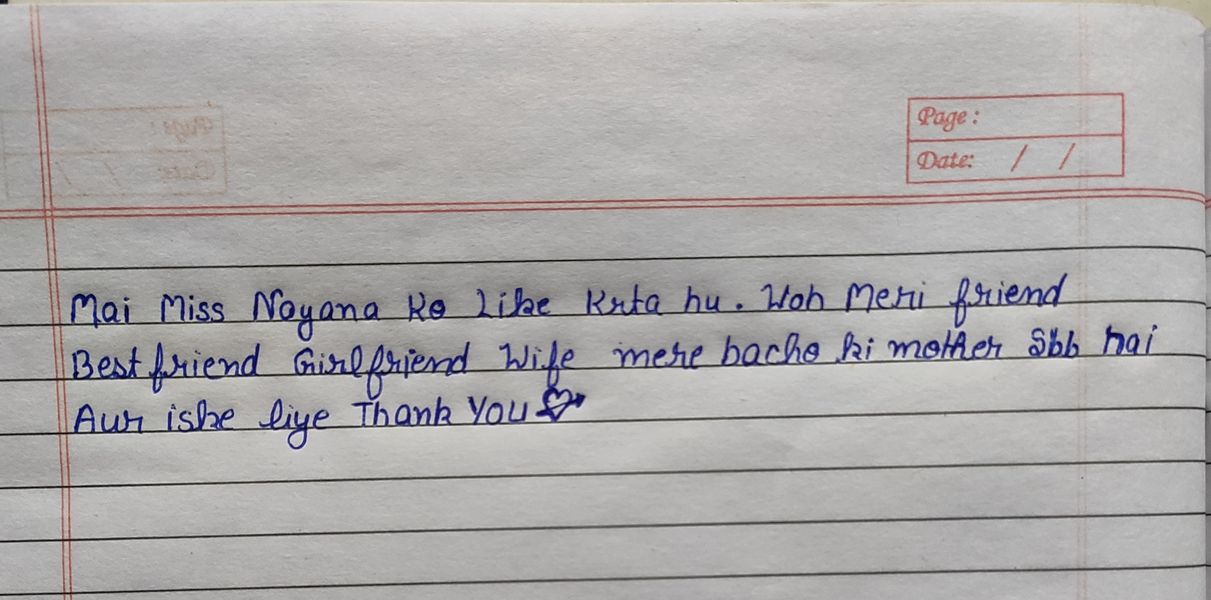 Page:
Date: / /
Mai Miss Nayana Ko Like Krta hu. Woh Meri friend
Best friend Girlfriend Wife mere bacho ki mother Sbb hai
Aur iske liye Thank You